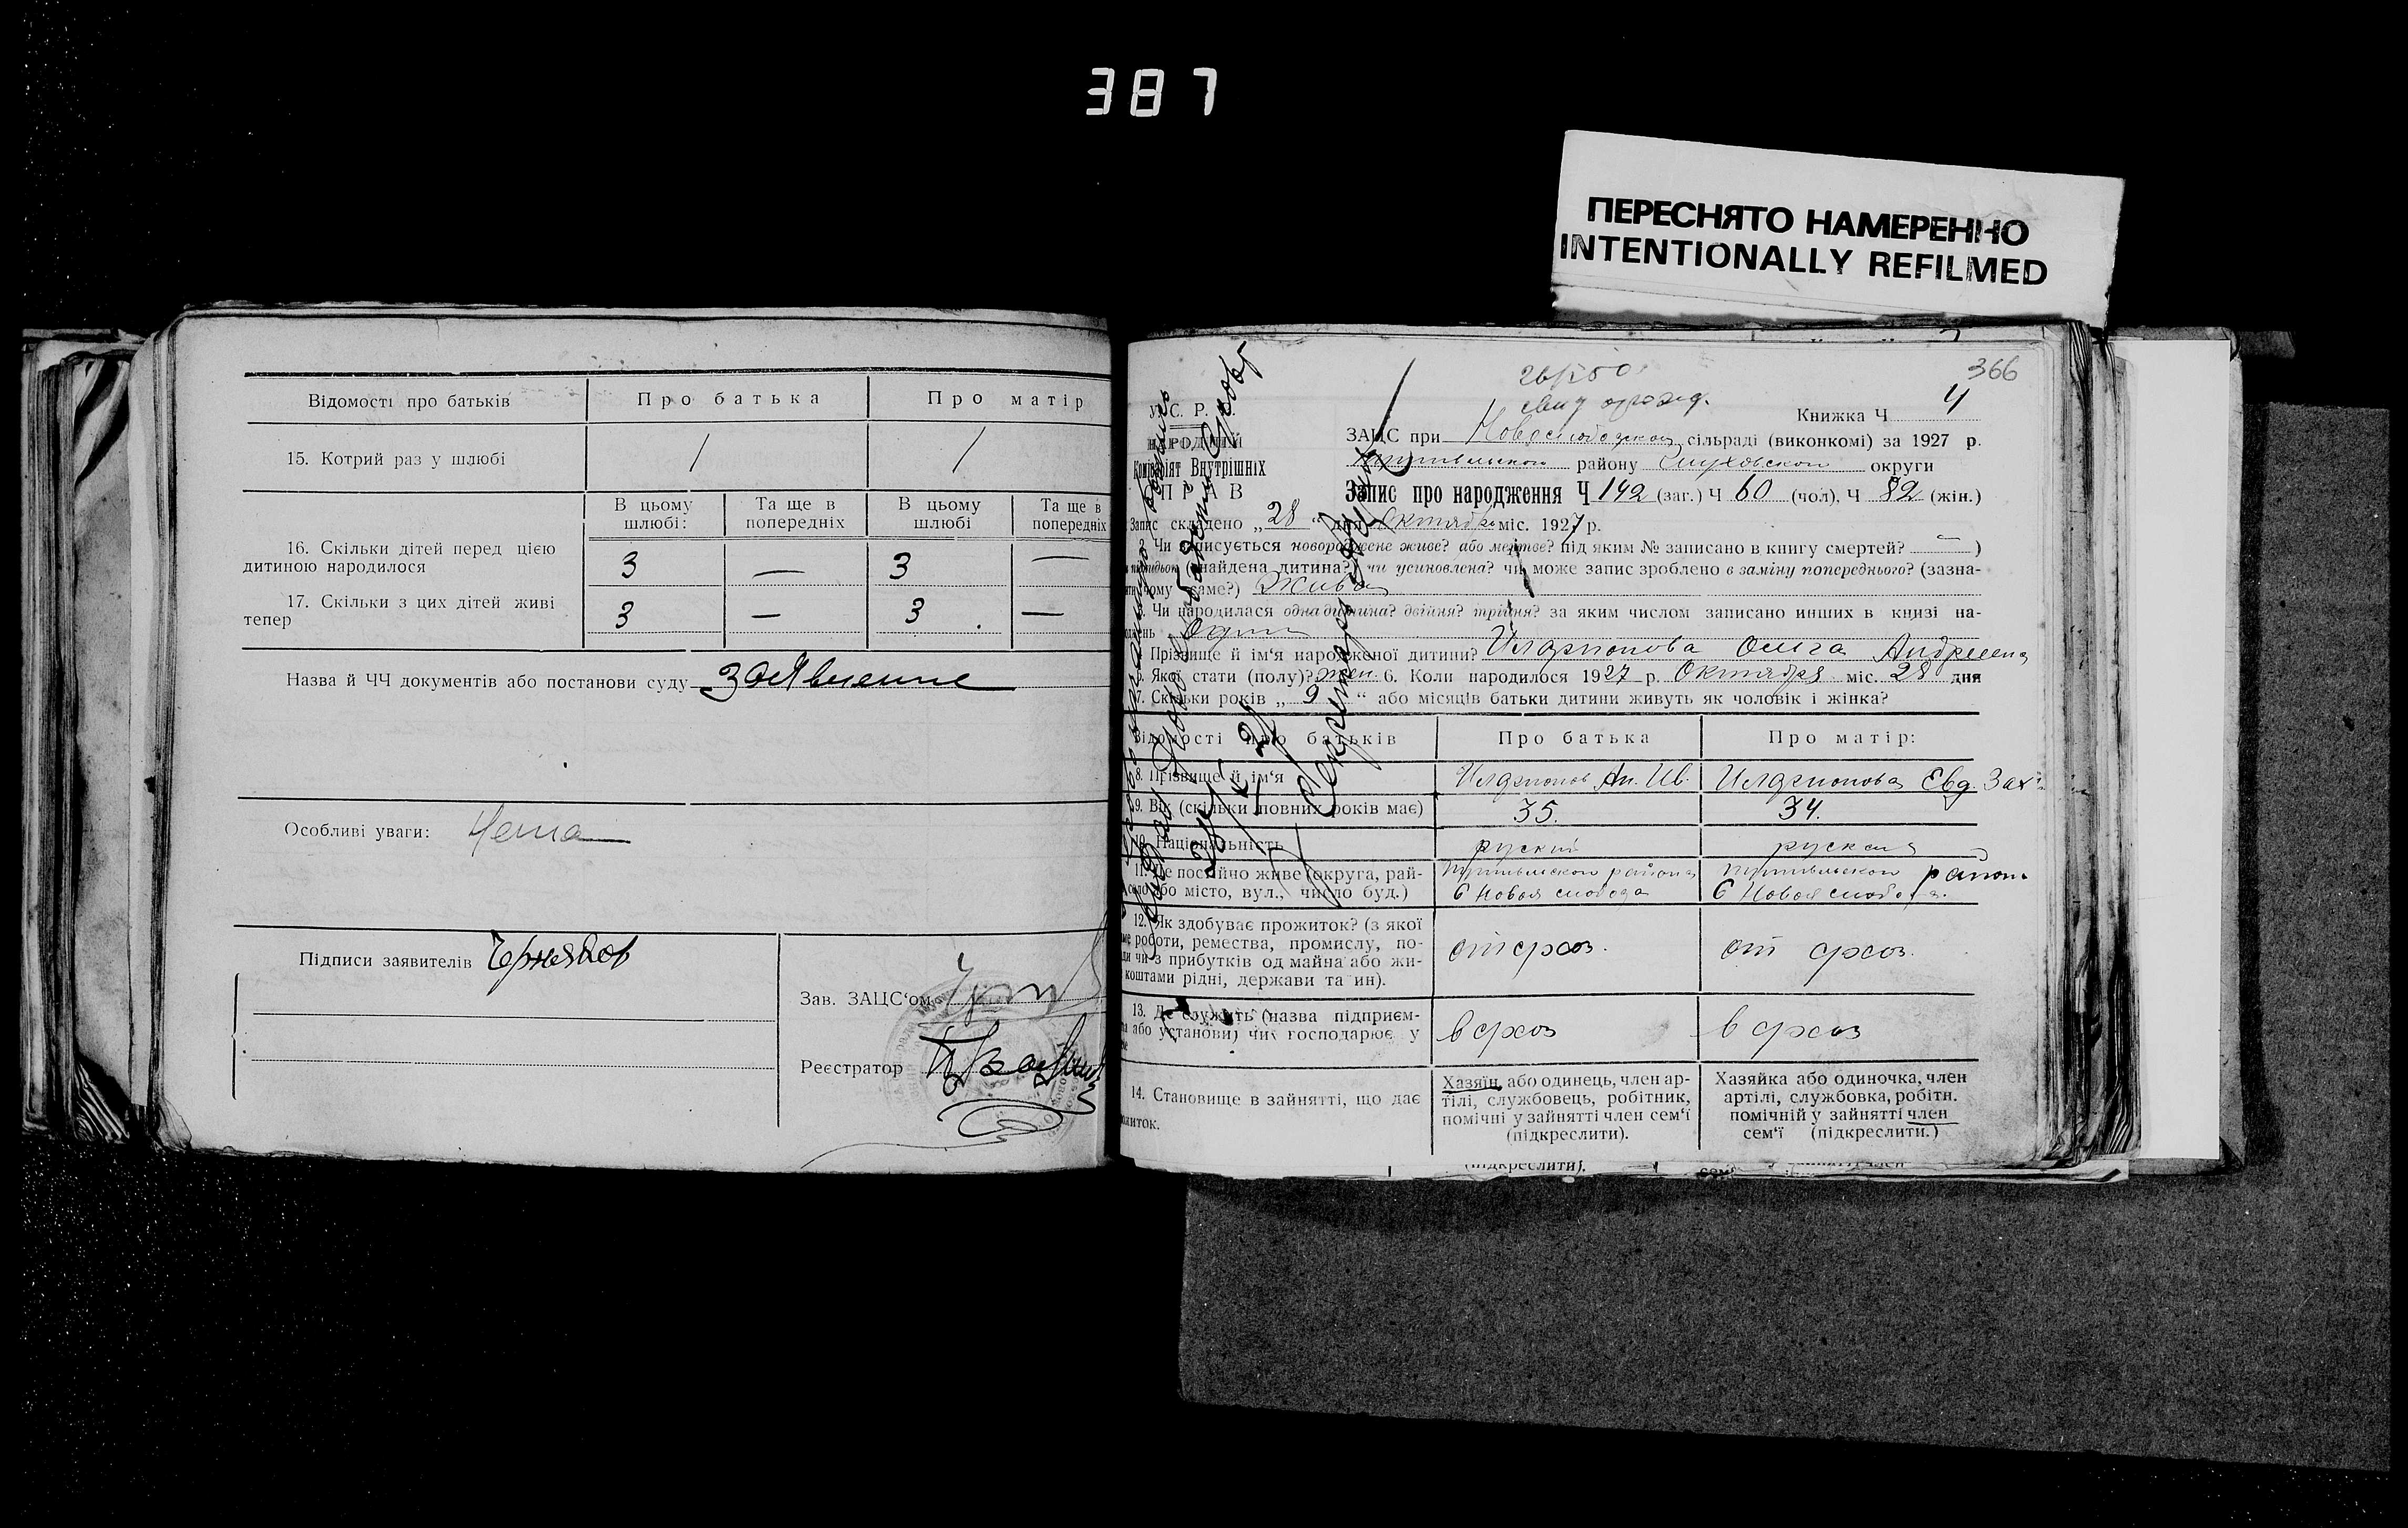 387
ПЕРЕСНЯТО НАМЕРЕННО
INTENTIONALLY REFILMED
Відомості про батьків
Про батька
Про матір
15. Котрий раз у шлюбі
/
/
В цьому шлюбі:
Та ще в попередніх
В цьому шлюбі
Та ще в попередніх
16. Скільки дітей перед цією
дитиною народилося
3 — 3 —
17. Скільки з цих дітей живі
тепер
3 — 3 —
Назва й ЧЧ документів або постанови суду заявление
Особливі уваги: Нема
Підписи заявителів Черняков
Зав. ЗАЦС‘ом
Реєстратор
366
свид
У. С. Р. Р.
НАРОДНІЙ
Комісаріят Внутрішніх
ПРАВ
Книжка Ч 4
ЗАЦС при Новослободском сільраді (виконкомі) за 1927 р.
Путивльского району Глуховской округи
Запис про народження Ч 142 (заг.) Ч 60 (чол), Ч 82 (жін.)
Запис складено „28“ дня Октября міс. 1927 р.
Чи записується новороджене живе? або мертве? під яким № записано в книгу смертей? — )
(знайдена дитина? чи усиновлена? чи може запис зроблено в заміну попереднього? (зазна-
чому саме?) Жива
Чи народилася одна дитина? двійня? трійня? за яким числом записано инших в книзі на-
Один
Прізвище й ім‘я народженої дитини? Иларионова Ольга Андреевна
Якої стати (полу)? жен. 6. Коли народилося 1927 р. Октября міс. 28 дня
7. Скільки років „ 9 “ або місяців батьки дитини живуть як чоловік і жінка?
Відомості про батьків
Про батька
Про матір:
8. Прізвище й ім‘я
Иларионов Ан. Ив.
Иларионова Евд. Зах.
9. Вік (скільки повних років має)
35.
34.
10. Національність
руский
руская
11. Де постійно живе (округа, рай-
село або місто, вул., число буд.)
Путивльскои района
С Новая слобода
Путивльскои район
С Новая слобода.
12. Як здобуває прожиток? (з якої
роботи, ремества, промислу, по-
чи з прибутків од майна або жи-
коштами рідні, держави та ин).
от схоз.
от схоз.
13. Де служить (назва підприєм-
або установи) чи господарює у
в схоз
в схоз
14. Становище в зайнятті, що дає
Хазяїн або одинець, член ар-
тілі, службовець, робітник,
помічні у зайнятті член сем‘ї
(підкреслити).
Хазяйка або одиночка, член
артілі, службовка, робітн.
помічній у зайнятті член
сем‘ї (підкреслити.)
(підкреслити).